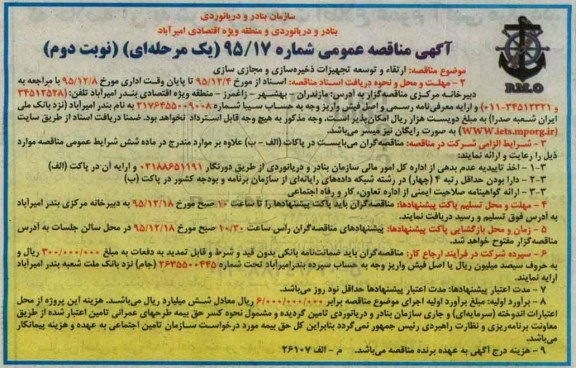 سازمان بنادر و دریانوردی
بنادر و دریانوردی و منطقه ویژه اقتصادی امیرآباد
آگهی مناقصه عمومی شماره ۹۵/۱۷ (یک مرحله‌ای) (نوبت دوم)
موضوع مناقصه: ارتقاء و توسعه تجهیزات ذخیره‌سازی و مجازی سازی
۲ - مهلت و محل و نحوه دریافت اسناد مناقصه: اسناد از مورخ ۹۵/۱۲/۴ تا پایان وقت اداری مورخ ۹۵/۱۲/۸ با مراجعه به
دبیرخانه مرکزی مناقصه‌گزار به آدرس: مازندران - بهشهر - زاغمرز - منطقه ویژه اقتصادی بندر امیرآباد تلفن: (۳۴۵۱۲۵۲۸
و ۳۴۵۱۲۳۲۱-۰۱۱) و ارایه معرفی‌نامه رسمی و اصل فیش واریز وجه به حساب سیبا شماره ۲۱۷۶۴۵۵۰۰۹۰۰۸ به نام بندر امیرآباد (نزد بانک ملی
ایران شعبه صدرا) به مبلغ دویست هزار ریال امکان‌پذیر است. وجه مذکور به هیچ وجه قابل استرداد نخواهد بود. ضمنا دریافت اسناد از طریق سایت
(WWW.iets.mporg.ir) به صورت رایگان نیز میسر می‌باشد.
۳ - شرایط الزامی شرکت در مناقصه: مناقصه‌گران می‌بایست در پاکات (الف - ب) علاوه بر موارد مندرج در ماده شش شرایط عمومی مناقصه موارد
ذیل را رعایت و ارائه نمایند:
۱-۳ - اخذ تاییدیه عدم بدهی از اداره کل امور مالی سازمان بنادر و دریانوردی از طریق دورنگار ۰۲۱۸۸۶۵۱۱۹۱ و ارایه آن در پاکت (الف)
۲-۳ - دارا بودن حداقل رتبه ۴ (چهار) در رشته شبکه داده‌های رایانه‌ای از سازمان برنامه و بودجه کشور در پاکت (ب)
۳-۳ - ارائه گواهینامه صلاحیت ایمنی از اداره تعاون، کار و رفاه اجتماعی
۴ - مهلت و محل تسلیم پاکت پیشنهادها: مناقصه‌گران باید پاکت پیشنهادها را تا ساعت ۱۰ صبح مورخ ۹۵/۱۲/۱۸ به دبیرخانه مرکزی بندر امیرآباد
به آدرس فوق تسلیم و رسید دریافت نمایند.
۵ - زمان و محل بازگشایی پاکت پیشنهادها: پیشنهادهای مناقصه‌گران راس ساعت ۱۰/۳۰ صبح مورخ ۹۵/۱۲/۱۸ در محل سالن جلسات به آدرس
مناقصه‌گزار مفتوح خواهد شد.
۶ - سپرده شرکت در فرآیند ارجاع کار: مناقصه‌گران باید ضمانت‌نامه بانکی بدون قید و شرط و قابل تمدید به دفعات به مبلغ ۳۰۰/۰۰۰/۰۰۰ ریال و
به حروف سیصد میلیون ریال یا اصل فیش واریز وجه به حساب سپرده بندرامیرآباد تحت شماره ۲۶۳۵۵۰۰۴۴۵ (جام) نزد بانک ملت شعبه بندر امیرآباد
ارایه نمایند.
۷ - مدت اعتبار پیشنهادها: مدت اعتبار پیشنهادها حداقل نود روز می‌باشد.
۸ - برآورد اولیه: مبلغ برآورد اولیه اجرای موضوع مناقصه برابر ۶/۰۰۰/۰۰۰/۰۰۰ ریال معادل شش میلیارد ریال می‌باشد. هزینه این پروژه از محل
اعتبارات اندوخته (سرمایه‌ای) و جاری سازمان بنادر و دریانوردی تامین گردیده و مشمول نحوه کسر حق بیمه طرحهای عمرانی تامین اعتبار شده از طریق
معاونت برنامه‌ریزی و نظارت راهبردی رئیس جمهور نمی‌گردد بنابراین کل حق بیمه مورد درخواست سازمان تامین اجتماعی به عهده و هزینه پیمانکار
می‌باشد.
۹ - هزینه درج آگهی به عهده برنده مناقصه می‌باشد. م - الف ۲۶۱۰۷
P.M.O